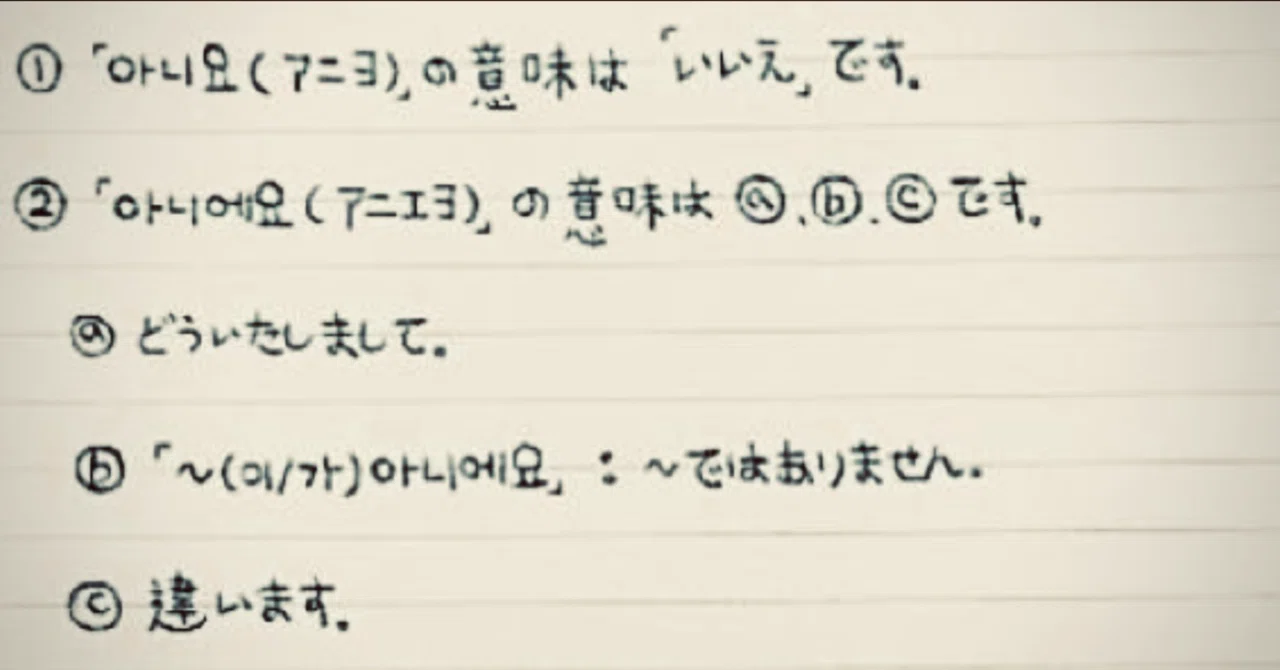 ① 「아니요(アニヨ)」の意味は「いいえ」です。
② 「아니에요(アニエヨ)」の意味は ⓐ、ⓑ、ⓒ です。
ⓐ どういたしまして。
ⓑ 「～(이/가)아니에요」：～ではありません。
ⓒ 違います。